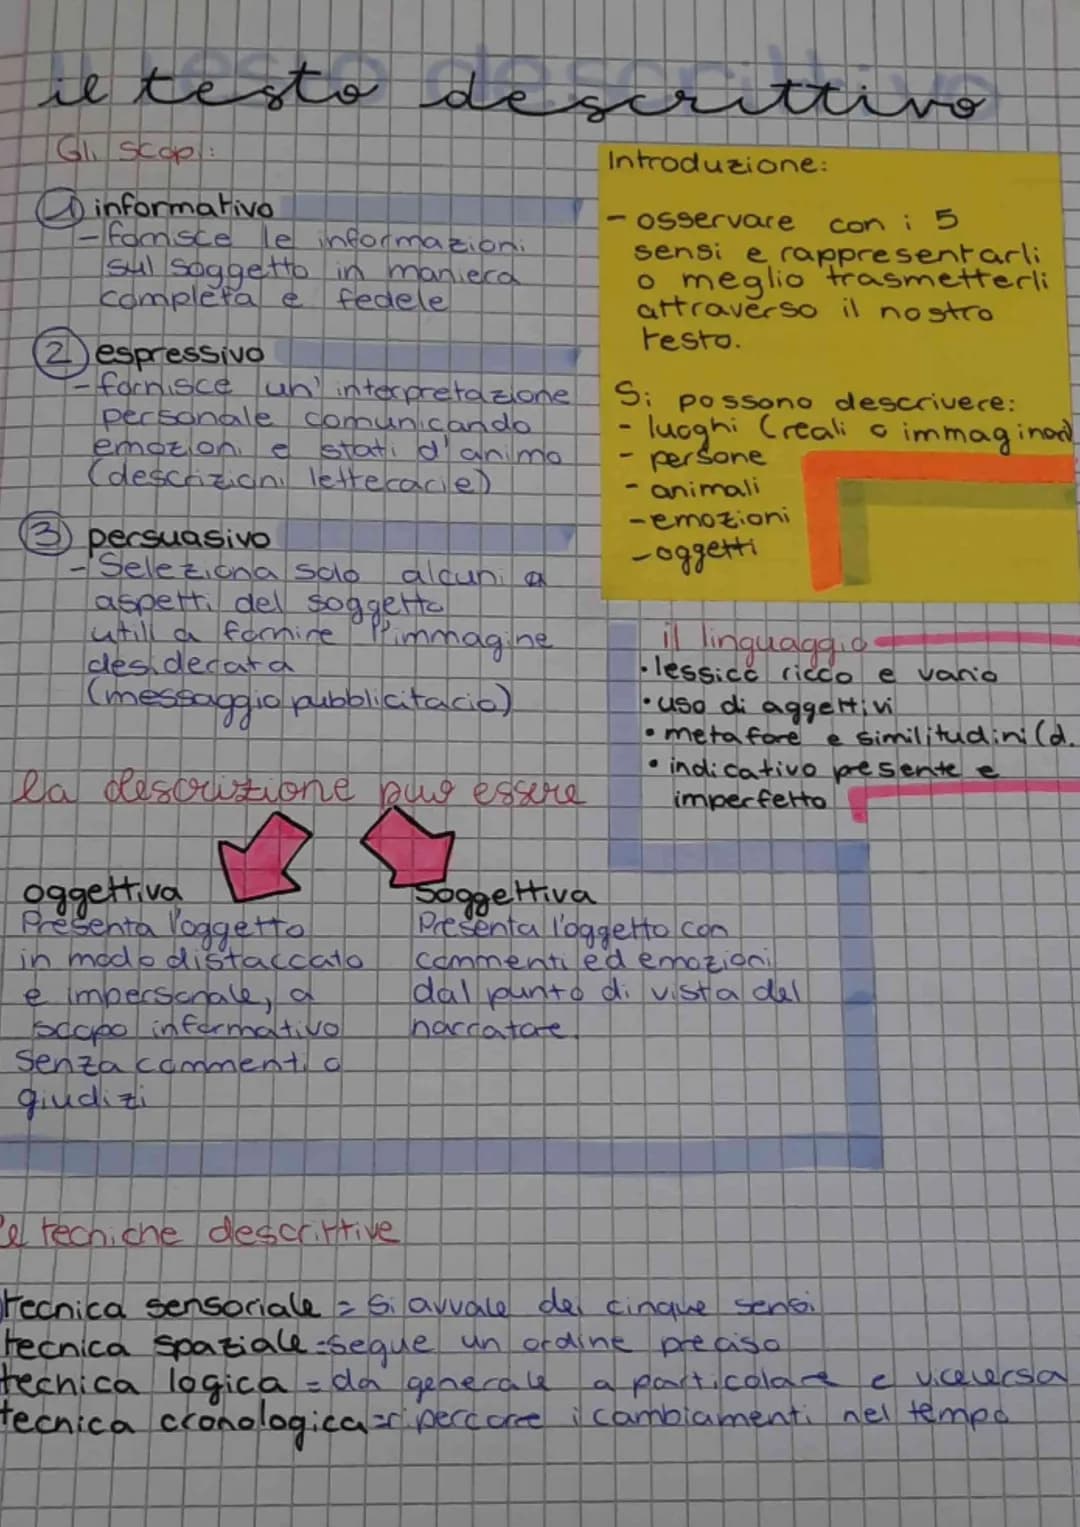 il testo descrittivo
Gli scopi:
1 informativo
- fornisce le informazioni
sul soggetto in maniera
completa e fedele
2 espressivo
- fornisce un' interpretazione
personale comunicando
emozioni e stati d'animo
(descrizioni letterarie)
3 persuasivo
- Seleziona solo alcuni
aspetti del soggetto
utili a fornire l'immagine
desiderata
(messaggio pubblicitario)
Introduzione:
- osservare con i 5
sensi e rappresentarli
o meglio trasmetterli
attraverso il nostro
testo.
Si possono descrivere:
- luoghi (reali o immaginari)
- persone
- animali
- emozioni
- oggetti
il linguaggio
• lessico ricco e vario
• uso di aggettivi
• metafore e similitudini (d.
• indicativo presente e
imperfetto
la descrizione può essere
oggettiva
Presenta l'oggetto
in modo distaccato
e impersonale, a
scopo informativo
senza commenti o
giudizi
soggettiva
Presenta l'oggetto con
commenti ed emozioni
dal punto di vista del
narratore.
le tecniche descrittive
tecnica sensoriale = si avvale dei cinque sensi
tecnica spaziale = segue un ordine preciso
tecnica logica = da generale a particolare e viceversa
tecnica cronologica = ripercorre i cambiamenti nel tempo